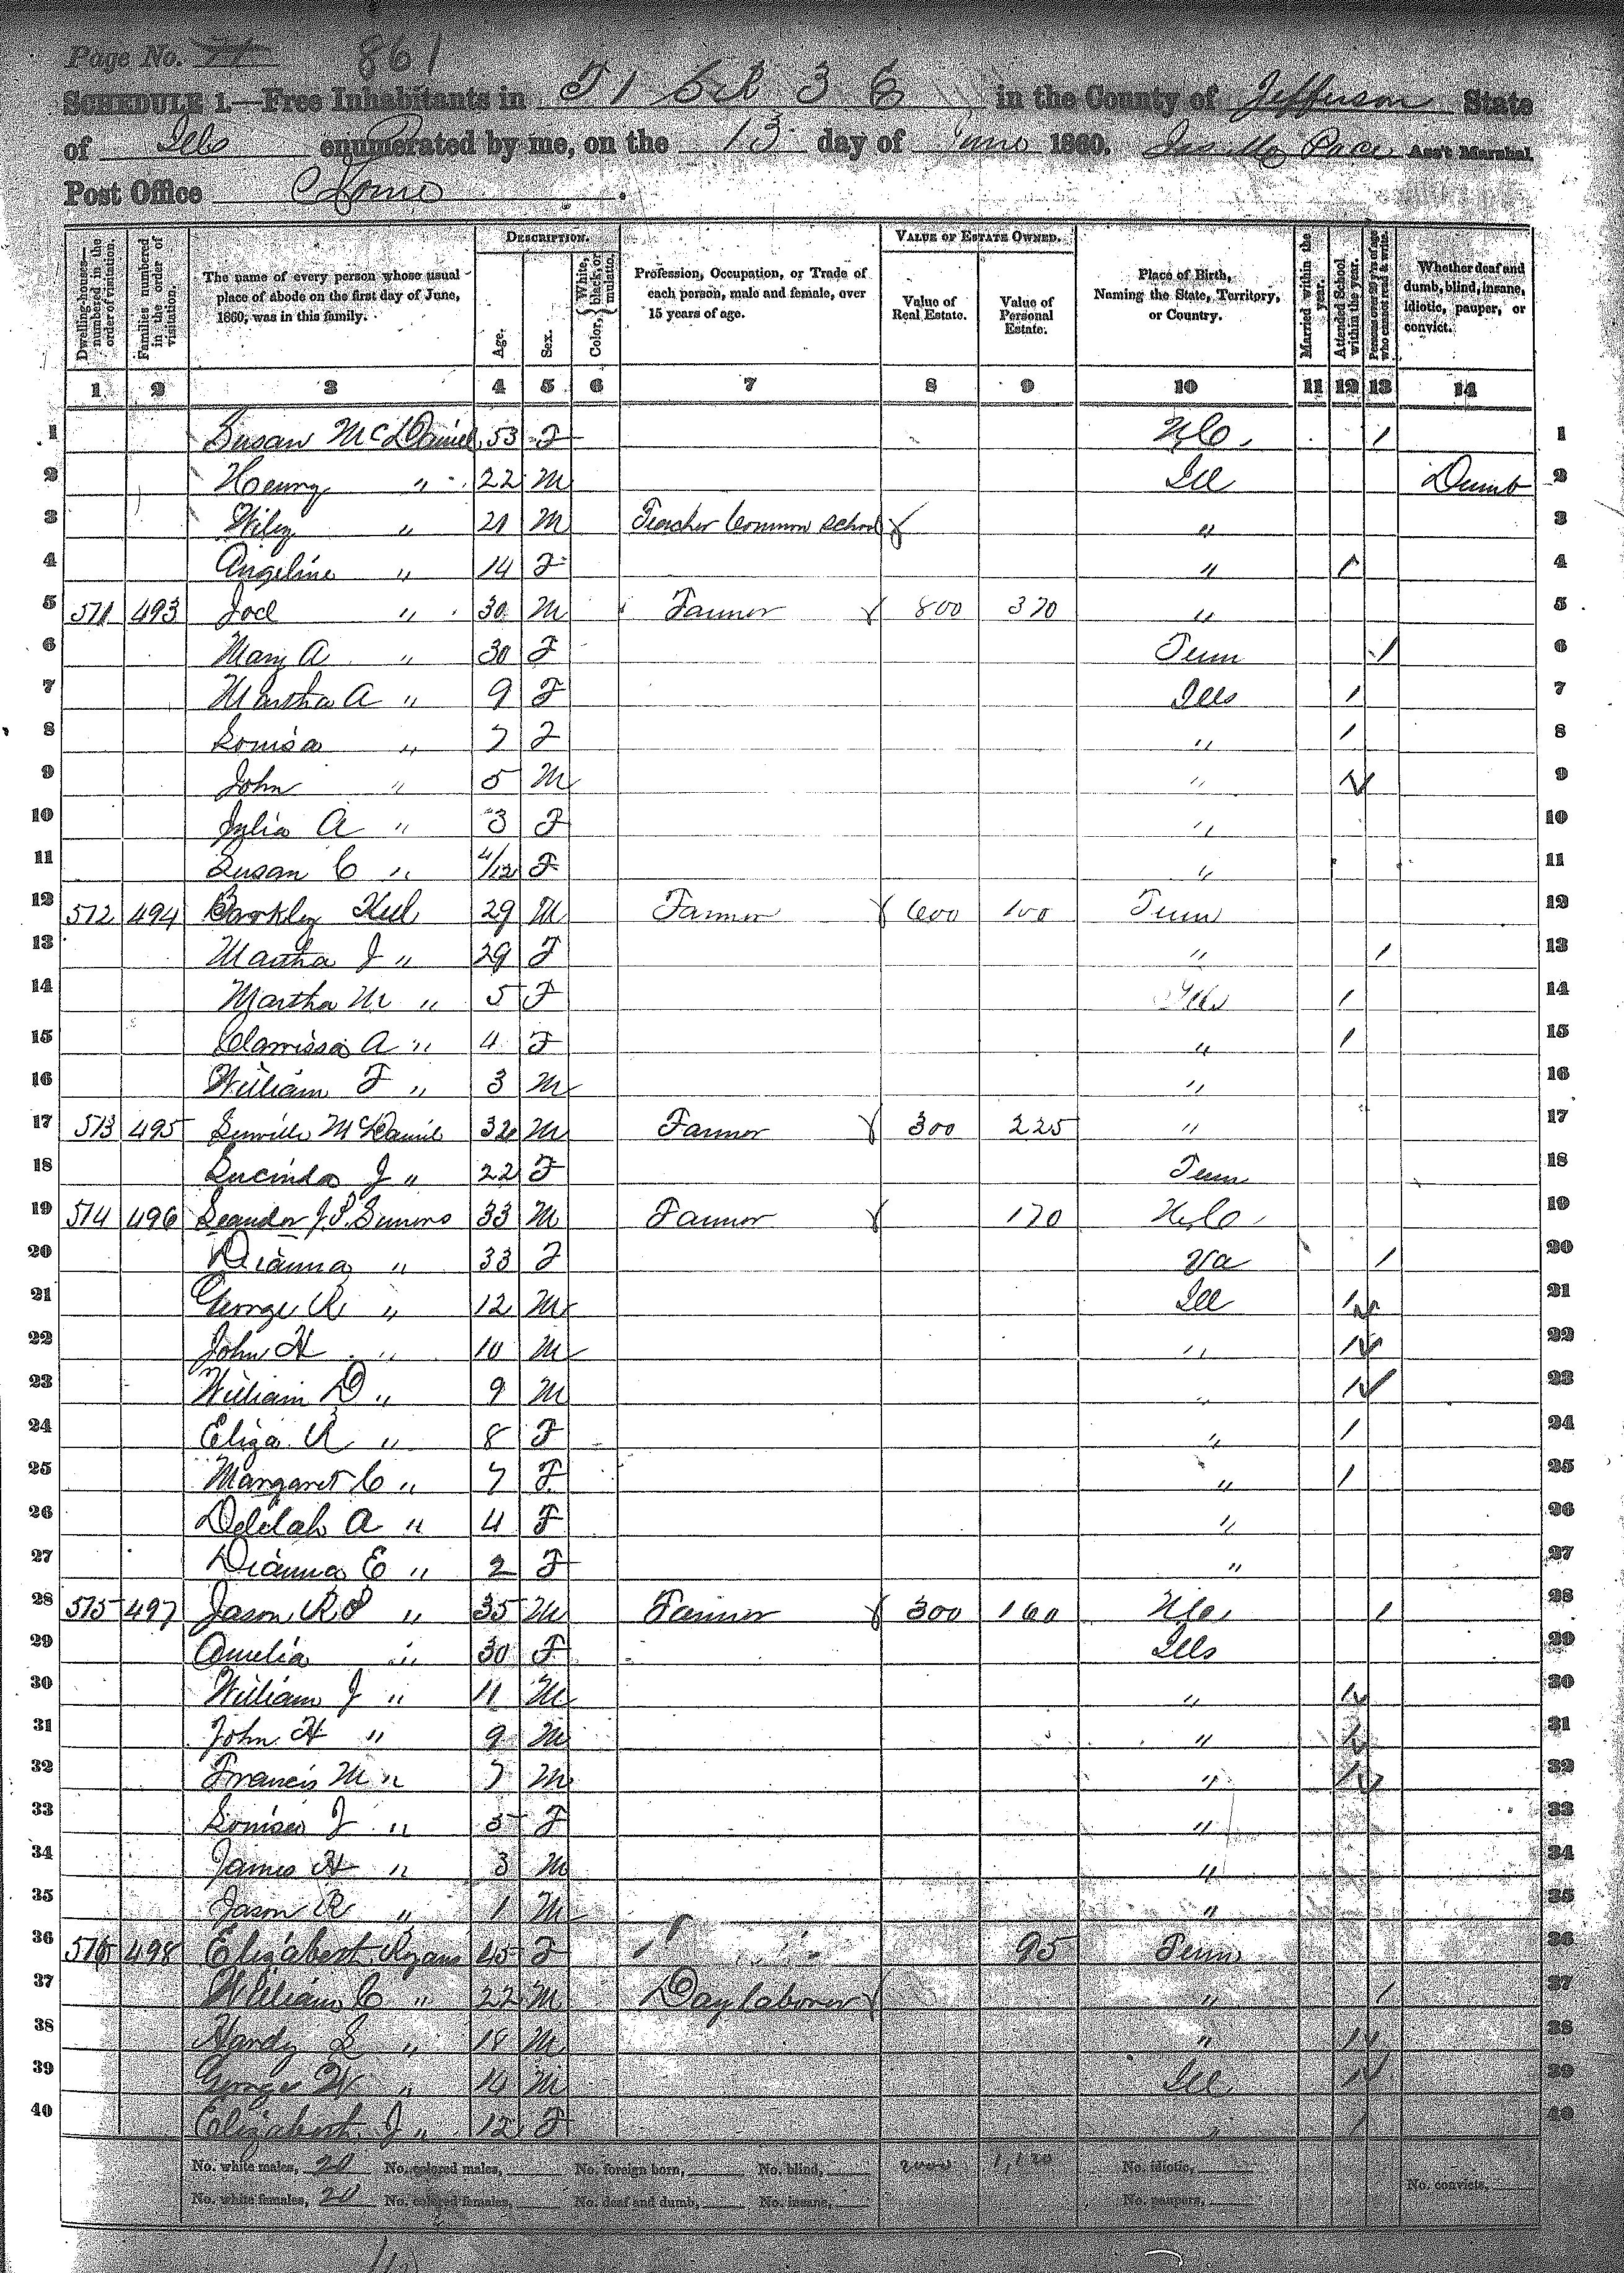 Page No. 861
SCHEDULE 1.—Free Inhabitants in T1 S R 3 E in the County of Jefferson State
of Ills enumerated by me, on the 13 day of June 1860. Pace Ass't Marshal.
Post Office Rome
Dwelling-houses—numbered in the order of visitation. Families numbered in the order of visitation. The name of every person whose usual place of abode on the first day of June, 1860, was in this family. DESCRIPTION. Age. Sex. Color, White, black, or mulatto. Profession, Occupation, or Trade of each person, male and female, over 15 years of age. VALUE OF ESTATE OWNED. Value of Real Estate. Value of Personal Estate. Place of Birth, Naming the State, Territory, or Country. Married within the year. Attended School within the year. Persons over 20 y'rs of age who cannot read & write. Whether deaf and dumb, blind, insane, idiotic, pauper, or convict.
1 2 3 4 5 6 7 8 9 10 11 12 13 14
1 Susan McDaniel 53 F N.C. / 1
2 Henry " 22 M Ill Dumb 2
3 Wiley " 21 M Teacher Common School " 3
4 Angeline " 14 F " / 4
5 571 493 Joel " 30 M Farmer 800 370 " 5
6 Mary A " 30 F Tenn / 6
7 Martha A " 9 F Ills / 7
8 Louisa " 7 F " / 8
9 John " 5 M " / 9
10 Julia A " 3 F " 10
11 Susan C " 4/12 F " 11
12 572 494 Keel 29 M Farmer 600 100 Tenn 12
13 Martha J " 29 F " / 13
14 Martha M " 5 F Ills / 14
15 Clarrissa A " 4 F " / 15
16 William F " 3 M " 16
17 573 495 McDaniel M Farmer 300 225 " 17
18 Lucinda J " 22 F Tenn 18
19 514 496 Leander J.P. Simms 33 M Farmer 170 N.C. 19
20 Dianna " 33 F Va / 20
21 George R " 12 M Ill / 21
22 John H " 10 M " / 22
23 William D " 9 M " / 23
24 Eliza R " 8 F " / 24
25 Margaret C " 7 F " / 25
26 Delilah A " 4 F " 26
27 Dianna E " 2 F " 27
28 575 497 Jason R P " 35 M Farmer 300 160 N.C. / 28
29 Amelia " 30 F Ills 29
30 William J " 11 M " / 30
31 John H " 9 M " / 31
32 Francis M " 7 M " / 32
33 Louisa J " 5 F " 33
34 James H " 3 M " 34
35 Jason R " 1 M " 35
36 576 498 Elizabeth 45 F 95 Tenn 36
37 William C " 22 M Day laborer " / 37
38 Hardy L " 18 M " / 38
39 George W " 14 M Ill / 39
40 Elizabeth J " 12 F " / 40
No. white males, 20 No. colored males, No. foreign born, No. blind, 2000 1,120 No. idiotic,
No. white females, 20 No. colored females, No. deaf and dumb, No. insane, No. paupers, No. convicts,